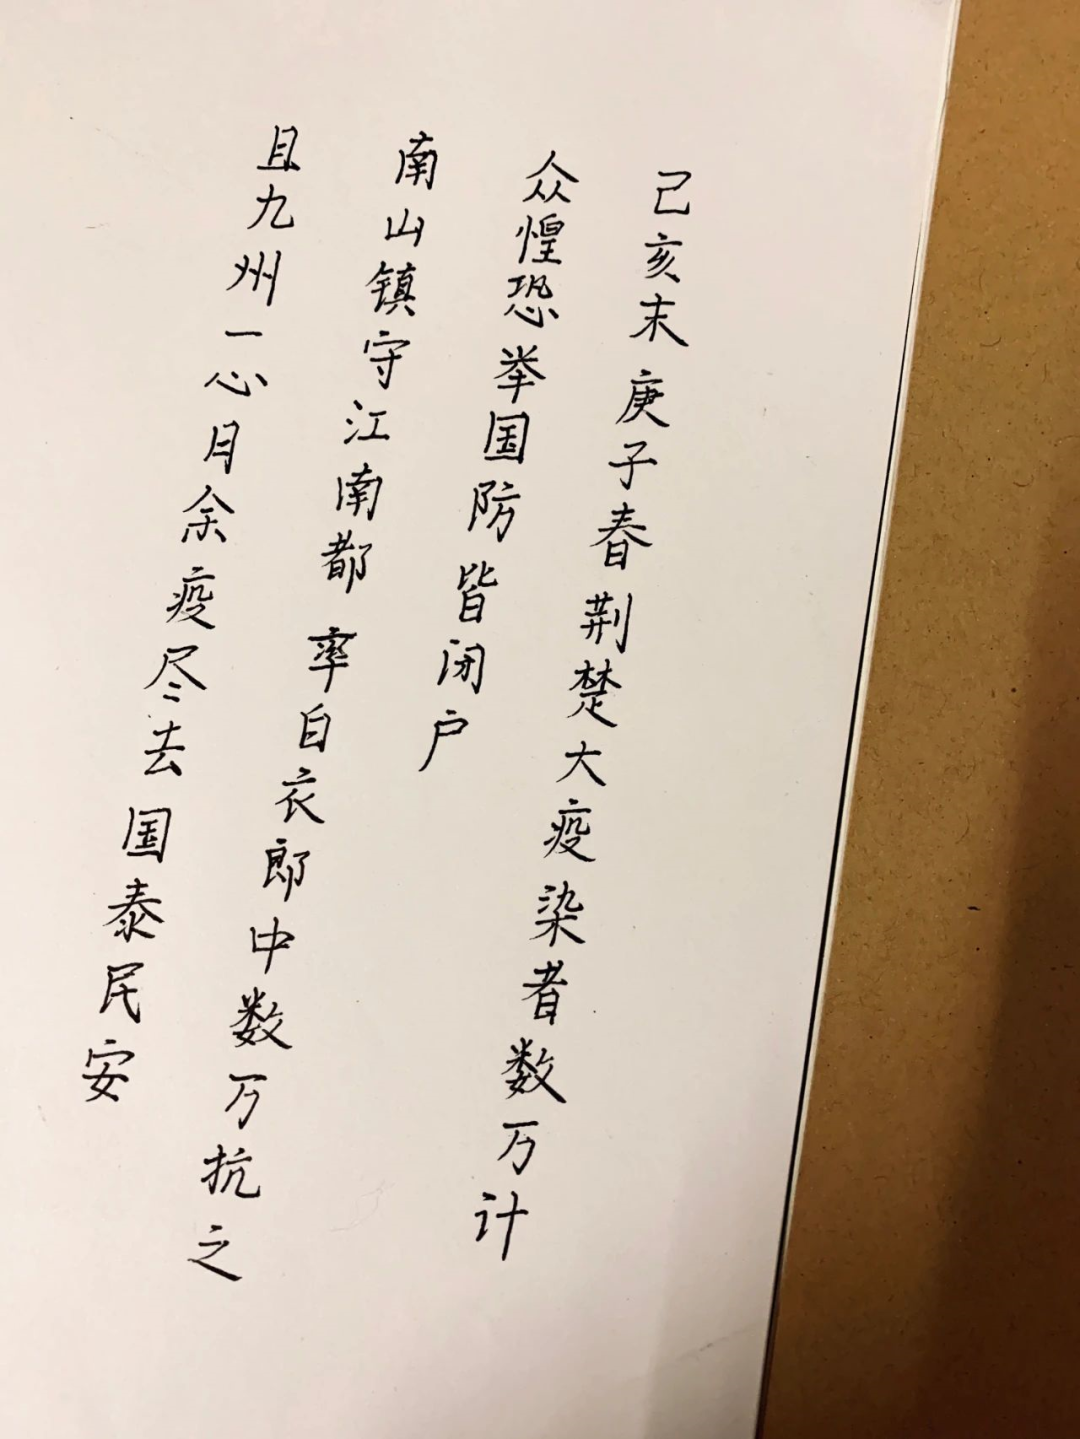 己亥末 庚子春 荆楚大疫 染者数万计
众惶恐 举国防 皆闭户
南山镇守江南都 率白衣郎中数万抗之
且九州一心 月余 疫尽去 国泰民安